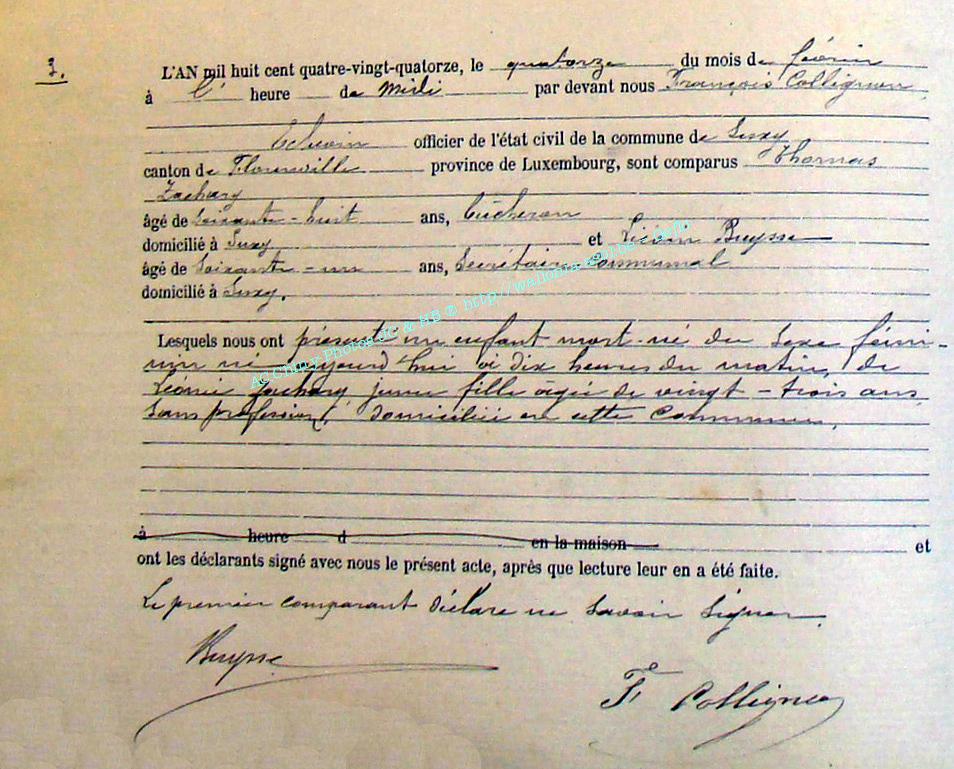 3.
L'AN mil huit cent quatre-vingt-quatorze, le quatorze du mois de février
à l' heure de Midi par devant nous François Collignon,
Echevin officier de l'état civil de la commune de Suxy
canton de Florenville province de Luxembourg, sont comparus Thomas
Zachary
âgé de soixante-huit ans, bûcheron
domicilié à Suxy et Buysse
âgé de Soixante-un ans, Secrétaire communal
domicilié à Suxy.
Lesquels nous ont présenté un enfant mort-né du Sexe fémi-
nin né aujourd'hui à dix heures du matin, de
Léonie Zachary, jeune fille âgée de vingt-trois ans,
sans profession, domiciliée en cette Commune.
à heure d en la maison et
ont les déclarants signé avec nous le présent acte, après que lecture leur en a été faite.
Le premier comparant déclare ne savoir signer.
Buysse
F Collignon
AC Chiny Photos JC & MB © http://wallonia-